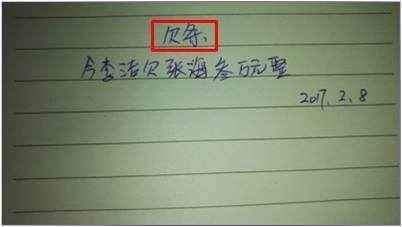 欠条、
今李洁欠张海叁万元整
2017.2.8